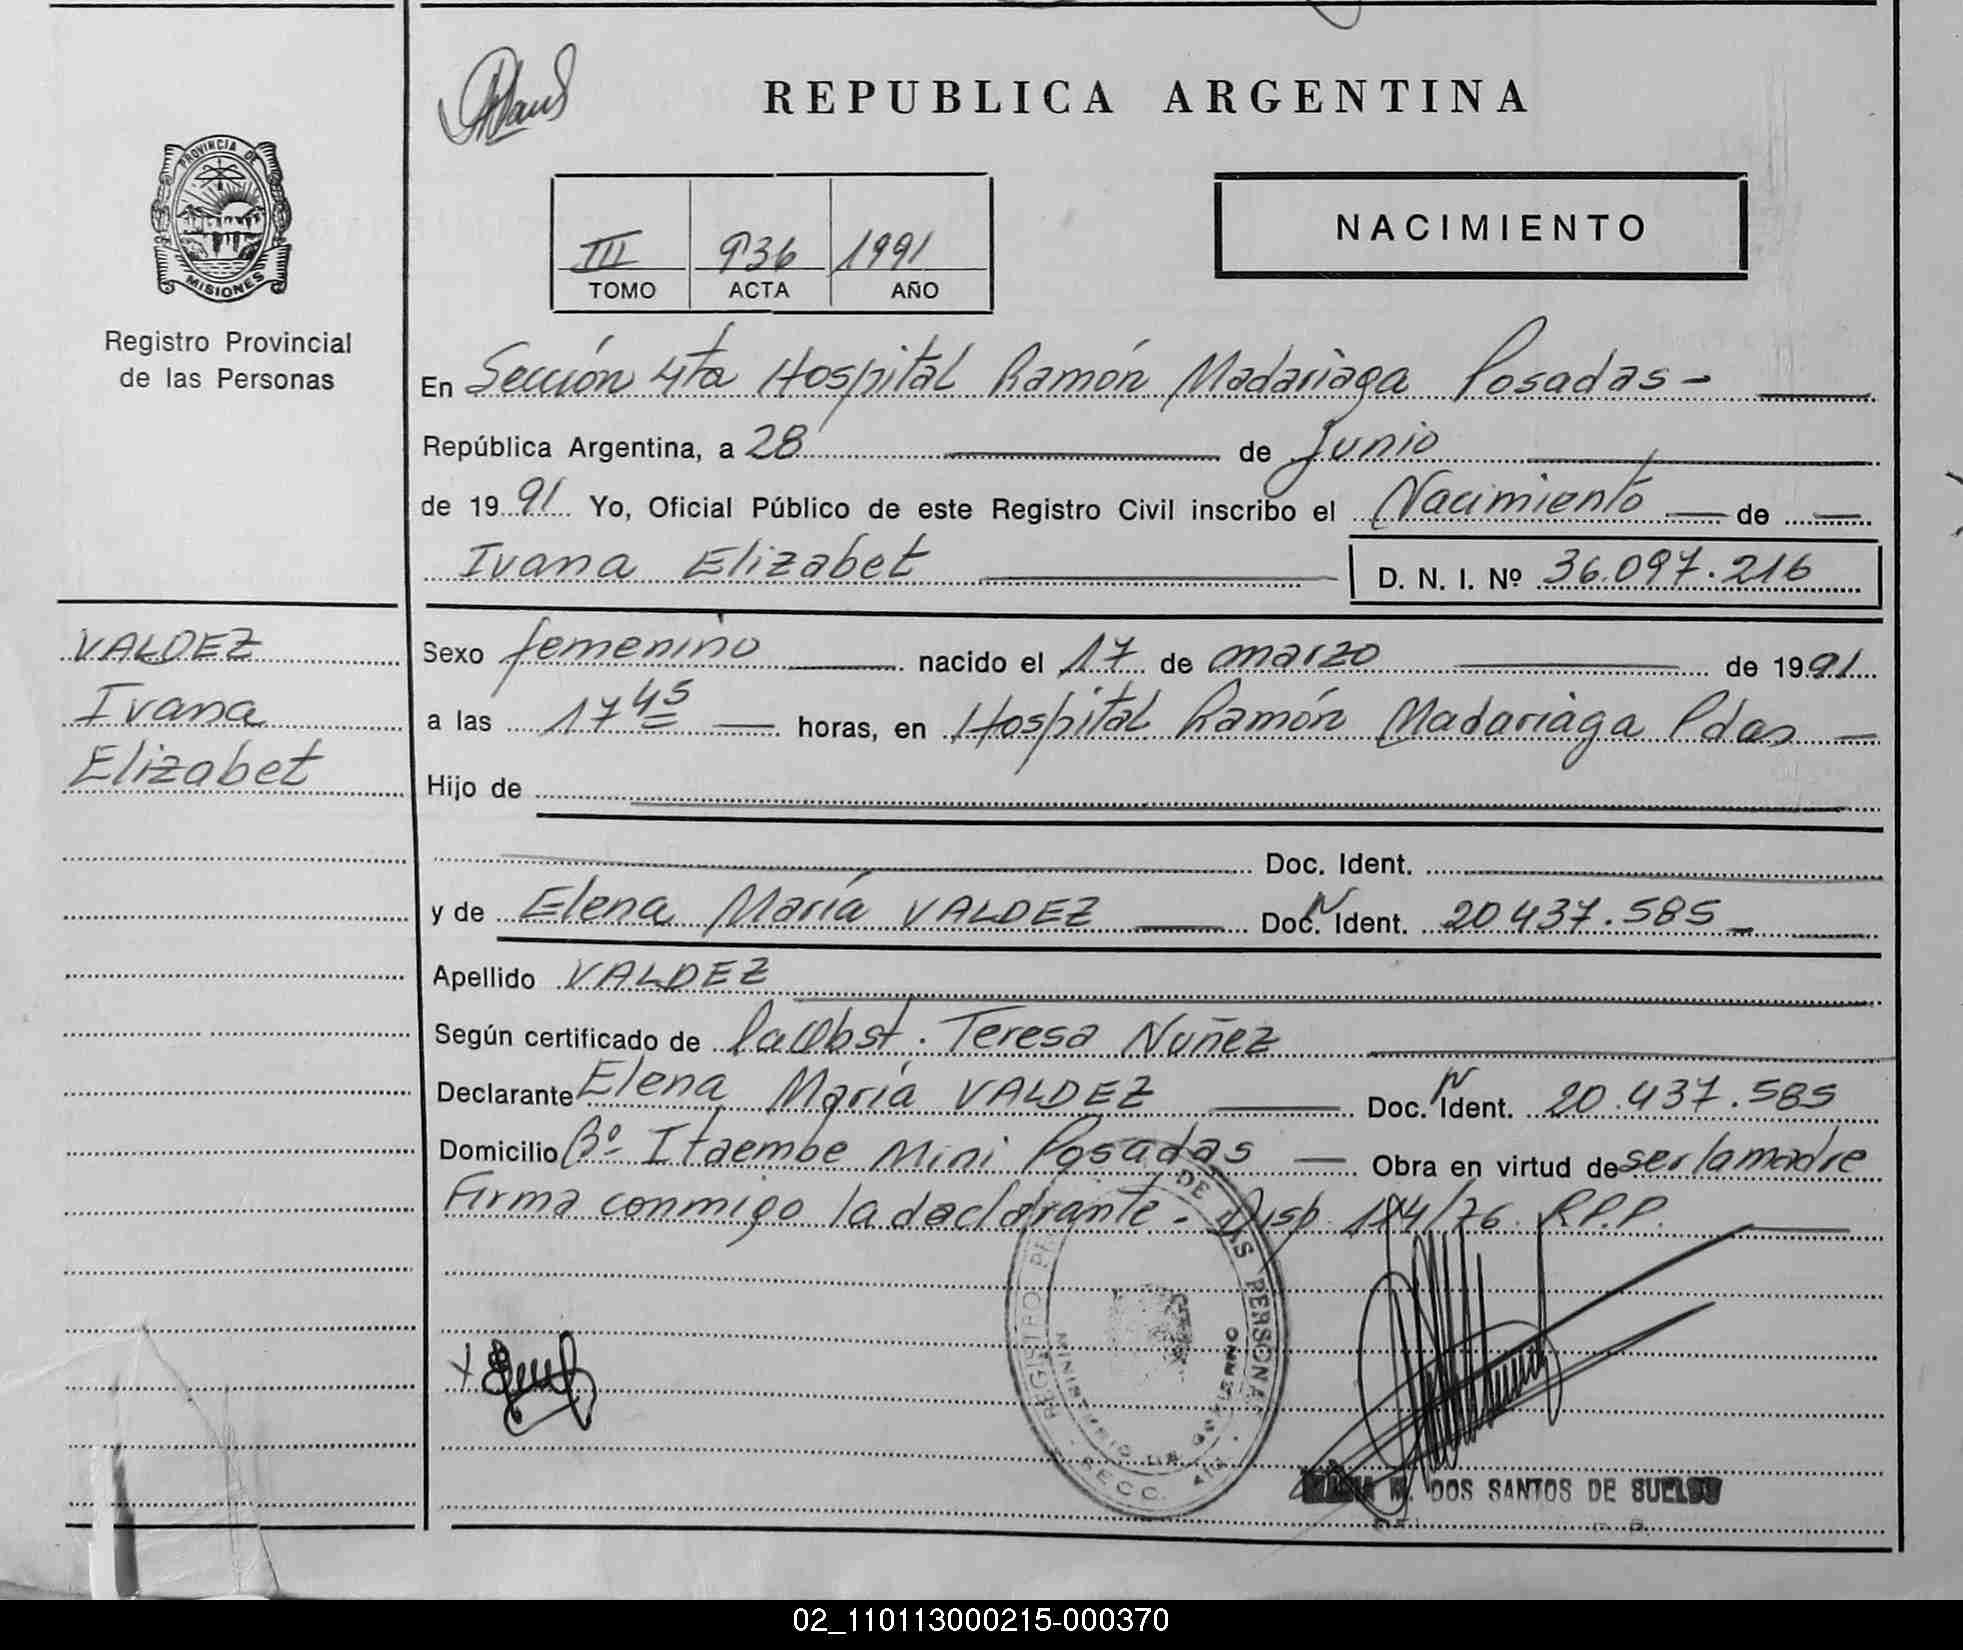 REPUBLICA ARGENTINA
PROVINCIA DE
MISIONES
Registro Provincial
de las Personas
III 936 1991
TOMO ACTA AÑO
NACIMIENTO
En Sección 4ta Hospital Ramón Madariaga Posadas -
República Argentina, a 28 de Junio
de 1991 Yo, Oficial Público de este Registro Civil inscribo el Nacimiento de
Ivana Elizabet D. N. I. Nº 36.097.216
VALDEZ
Ivana
Elizabet
Sexo femenino nacido el 17 de marzo de 1991
a las 17 45 horas, en Hospital Ramón Madariaga Pdas
Hijo de
Doc. Ident.
y de Elena María VALDEZ Doc. N Ident. 20 437.585
Apellido VALDEZ
Según certificado de la Obst. Teresa Nuñez
Declarante Elena María VALDEZ Doc. N Ident. 20.437.585
Domicilio Bº Itaembe Mini Posadas Obra en virtud de ser la madre
Firma conmigo la declarante - Disp. 174/76 R.P.P.
REGISTRO DE LAS PERSONAS
MINISTERIO DE GOBIERNO
SECC. 4ta
M. DOS SANTOS DE SUELDO
02_110113000215-000370